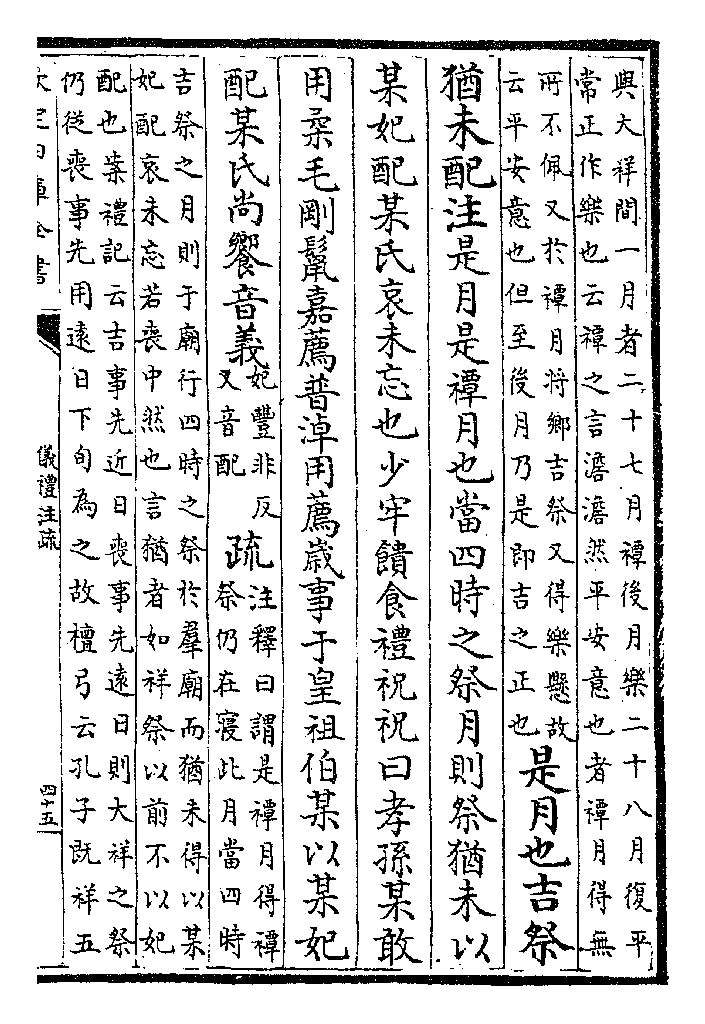 與大祥間一月者二十七月禫後月樂二十八月復平
常正作樂也云禫之言澹澹然平安意也者禫月得無
所不佩又於禫月將鄉吉祭又得樂懸故
云平安意也但至後月乃是即吉之正也
是月也吉祭
猶未配注是月是禫月也當四時之祭月則祭猶未以
某妃配某氏哀未忘也少牢饋食禮祝祝曰孝孫某敢
用柔毛剛鬛嘉薦普淖用薦歲事于皇祖伯某以某妃
配某氏尚饗音義
妃豐非反
又音配
疏
注釋曰謂是禫月得禫
祭仍在寢此月當四時
吉祭之月則于廟行四時之祭於羣廟而猶未得以某
妃配哀未忘若喪中然也言猶者如祥祭以前不以妃
配也案禮記云吉事先近日喪事先遠日則大祥之祭
仍從喪事先用遠日下旬為之故檀弓云孔子既祥五
欽定四庫全書
儀禮注疏
四十五